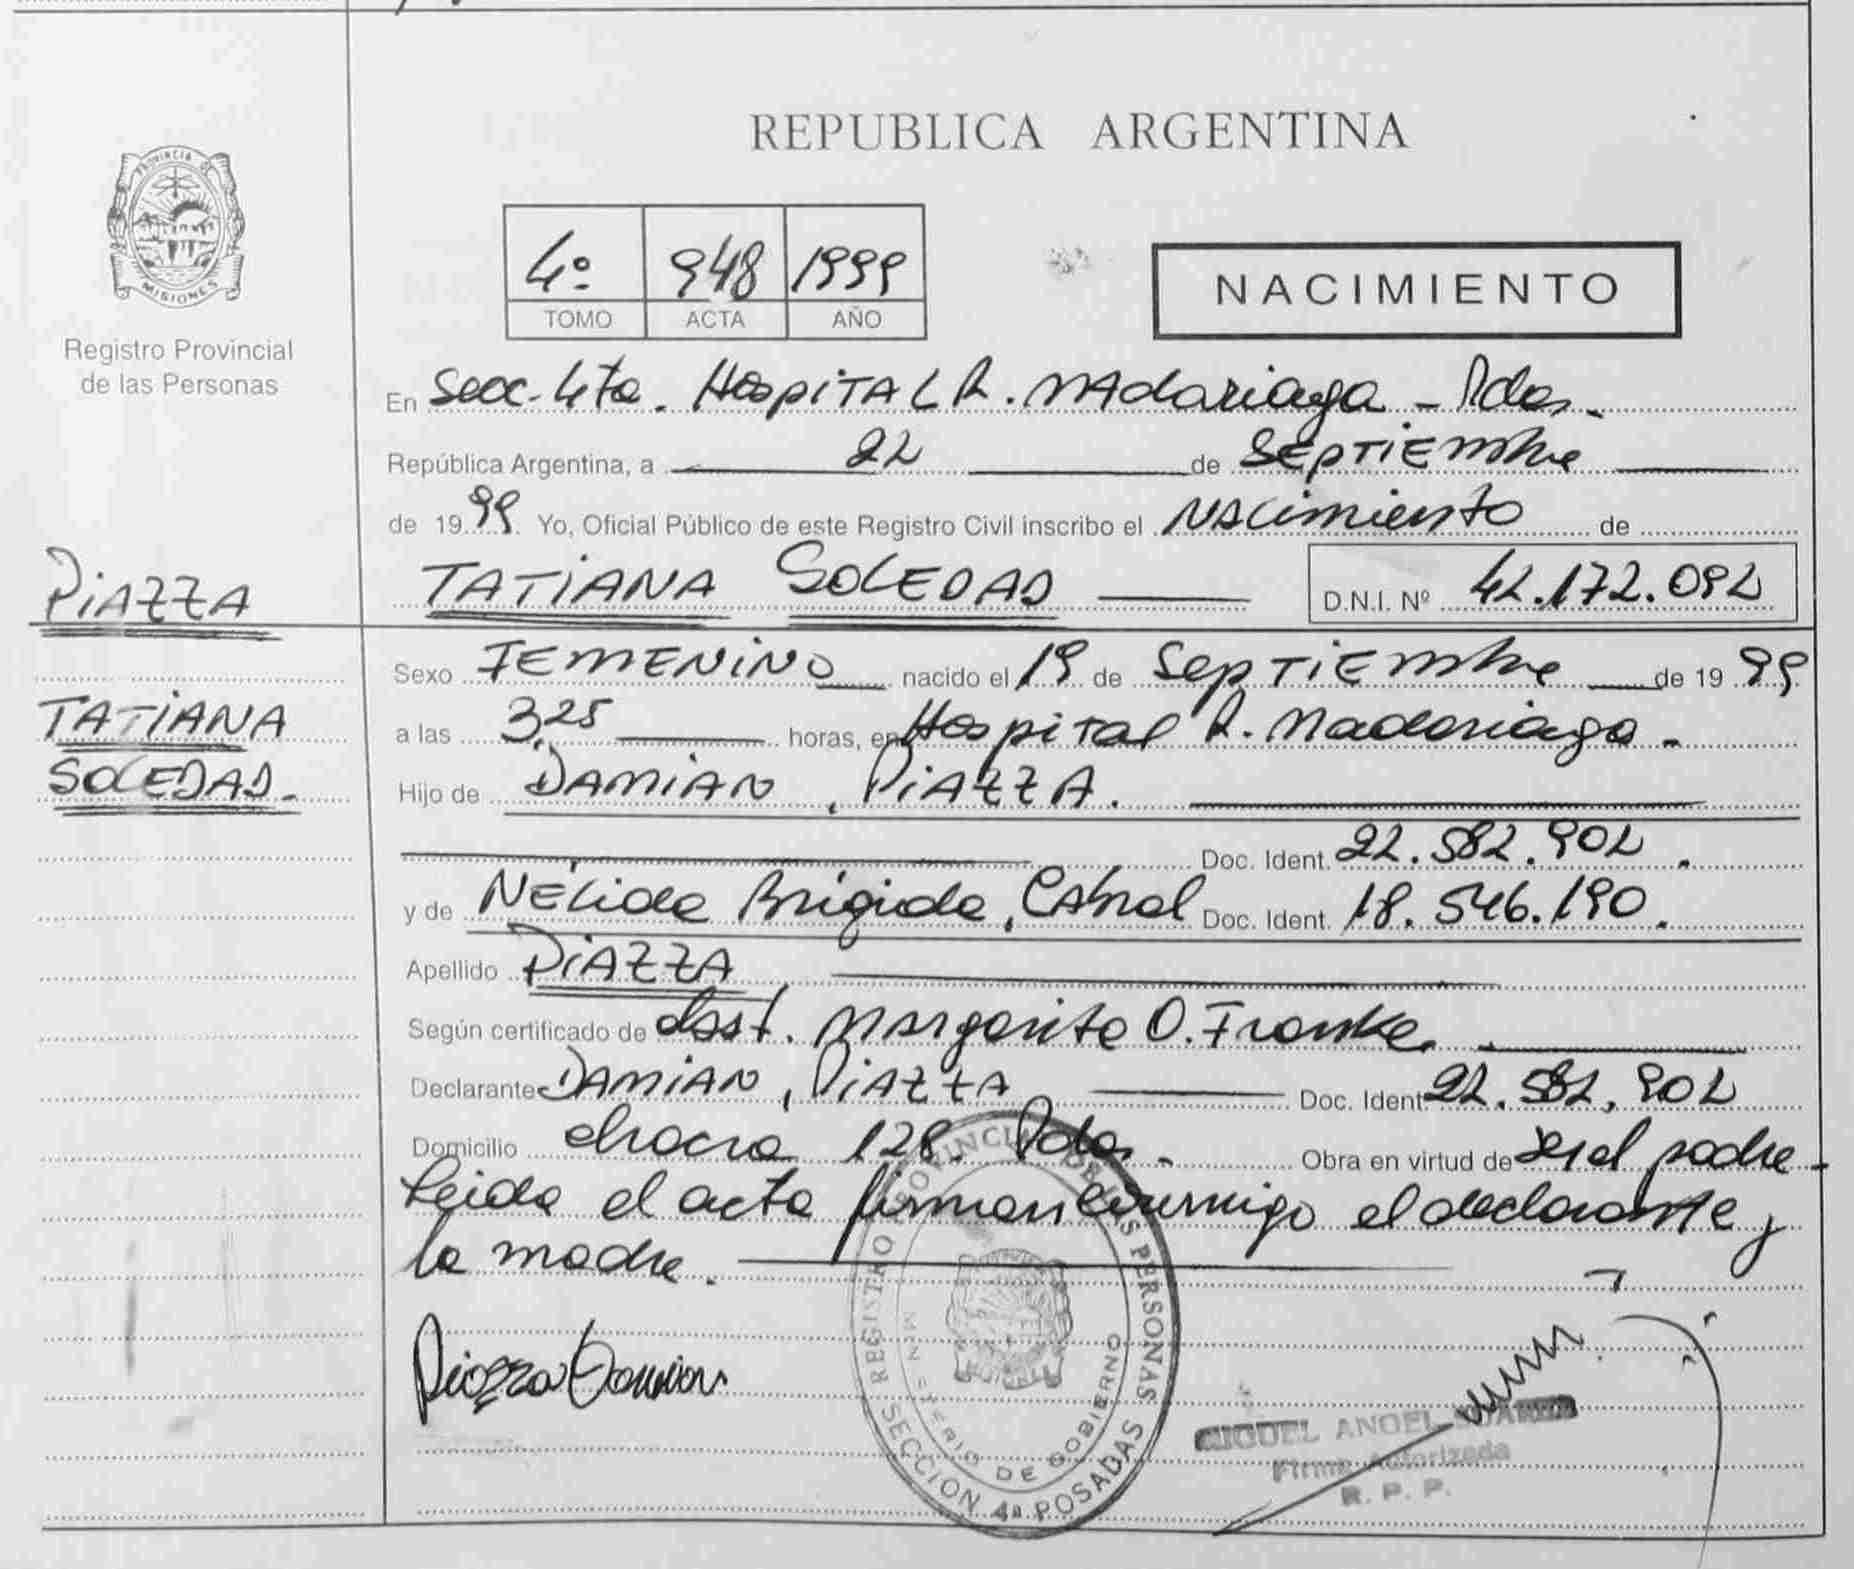 REPUBLICA ARGENTINA
PROVINCIA DE
MISIONES
Registro Provincial
de las Personas
4º 948 1999
TOMO ACTA AÑO
NACIMIENTO
En Secc. 4ta. Hospital R. Madariaga - Pdas.
República Argentina, a 22 de Septiembre
de 1999 Yo, Oficial Público de este Registro Civil inscribo el Nacimiento de
PIAZZA
TATIANA SOLEDAD
D.N.I. Nº 42.172.092
TATIANA
SOLEDAD.
Sexo FEMENINO nacido el 19 de Septiembre de 1999
a las 3,25 horas, en Hospital R. Madariaga.
Hijo de DAMIAN, PIAZZA.
Doc. Ident. 22.582.902.
y de Nélida Brígida, Cabral Doc. Ident. 18.546.190.
Apellido PIAZZA
Según certificado de Obst. Margarita O. Franke.
Declarante DAMIAN, PIAZZA Doc. Ident 22.582.902
Domicilio chacra 128. Pdas. Obra en virtud de ser el padre.
Leida el acta firman conmigo el declarante y
la madre.
Piazza Damian
REGISTRO PROVINCIAL DE LAS PERSONAS
MINISTERIO DE GOBIERNO
SECCION 4ª POSADAS
MIGUEL ANGEL
Firma Autorizada
R. P. P.